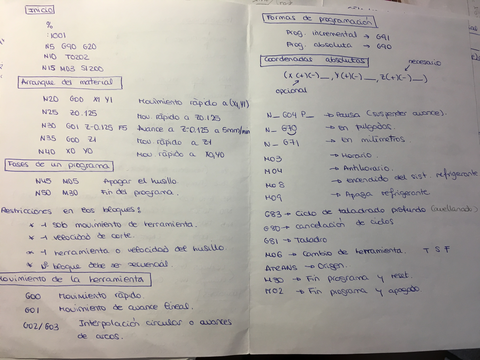 Inicio
%
:1001
N5 G90 G20
N10 T0202
N15 M03 S1200
Arranque del material
N20 G00 X1 Y1 Movimiento rápido a (X1,Y1)
N25 Z0.125 Mov. rápido a Z0.125
N30 G01 Z-0.125 F5 Avance a Z-0.125 a 5mm/min
N35 G00 Z1 Mov. rápido a Z1
N40 X0 Y0 Mov. rápido a X0,Y0
Fases de un programa
N45 M05 Apagar el husillo
N50 M30 Fin del programa.
Restricciones en los bloques:
* 1 solo movimiento de herramienta.
* 1 velocidad de corte.
* 1 herramienta o velocidad del husillo
* bloque debe ser secuencial
Movimiento de la herramienta
G00 Movimiento rápido.
G01 Movimiento de avance lineal.
G02/G03 Interpolación circular o avances
de arcos.
Formas de programación
Prog. incremental → G91
Prog. absoluta → G90
Coordenadas absolutas
necesario
(X(+)(-)__, Y(+)(-)__, Z(+)(-)__)
opcional
N_ G04 P_ → Pausa (suspender avance).
N_ G70 → en pulgadas.
N_ G71 → en milímetros
M03 → Horario.
M04 → Antihorario
M08 → encendido del sist refrigerante
M09 → Apaga refrigerante
G83 → Ciclo de taladrado profundo
G80 → cancelación de ciclos
G81 → Taladro
M06 → Cambio de herramienta. T S F
→ Origen.
M30 → Fin programa y reset.
M02 → Fin programa y apagado